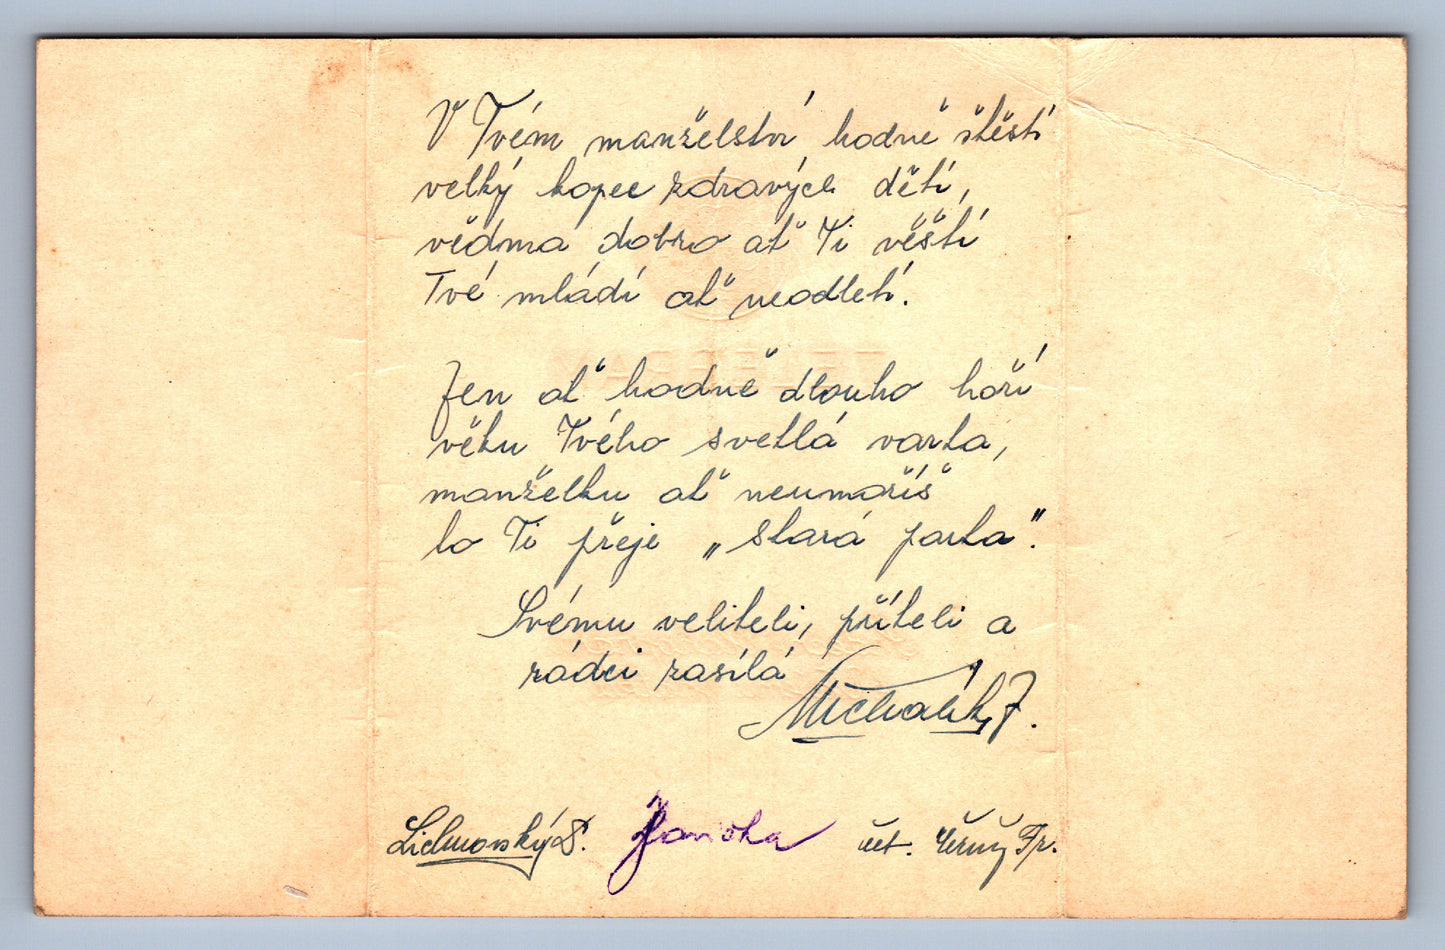 V Tvém manželství hodně štěstí
velký kopec zdravých dětí,
vědma dobro ať Ti věští
Tvé mládí ať neodletí.
Jen ať hodně dlouho hoří
věku Tvého svetlá varta,
manželku ať neumoříš
to Ti přeje „stará parta".
Svému veliteli, příteli a
rádci zasílá
Michalík J.
Lichnovský
Janička
čet. Černý Fr.